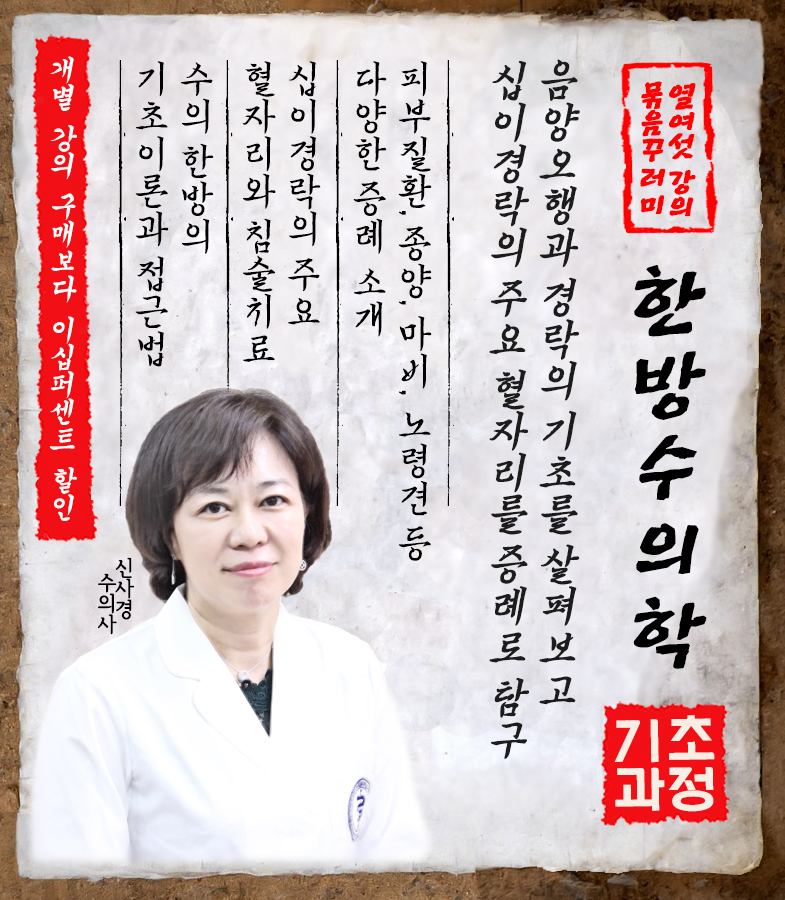 열여섯 강의
묶음꾸러미
한방수의학
기초
과정
음양오행과 경락의 기초를 살펴보고
십이경락의 주요 혈자리를 증례로 탐구
피부질환, 종양, 마비, 노령견 등
다양한 증례 소개
십이경락의 주요
혈자리와 침술치료
수의 한방의
기초이론과 접근법
개별 강의 구매보다 이십퍼센트 할인
신사경
수의사